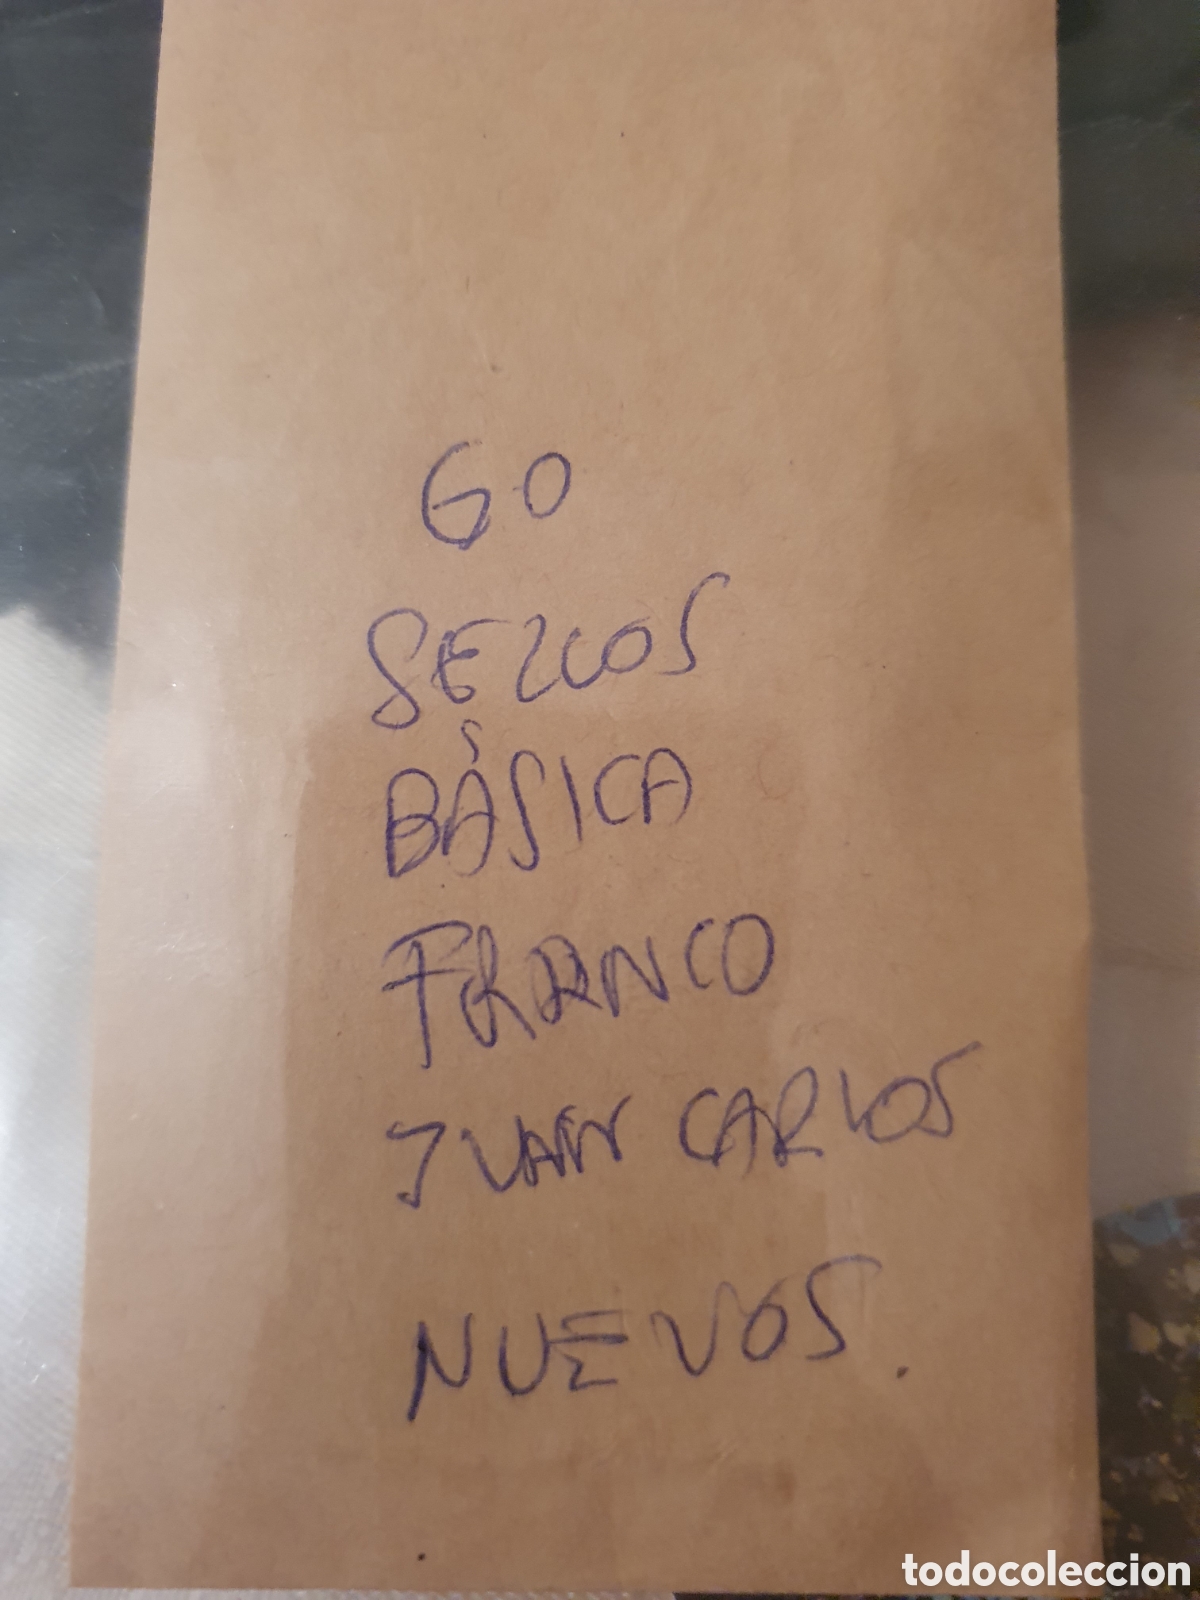 60
SELLOS
BÁSICA
FRANCO
JUAN CARLOS
NUEVOS.
todocoleccion